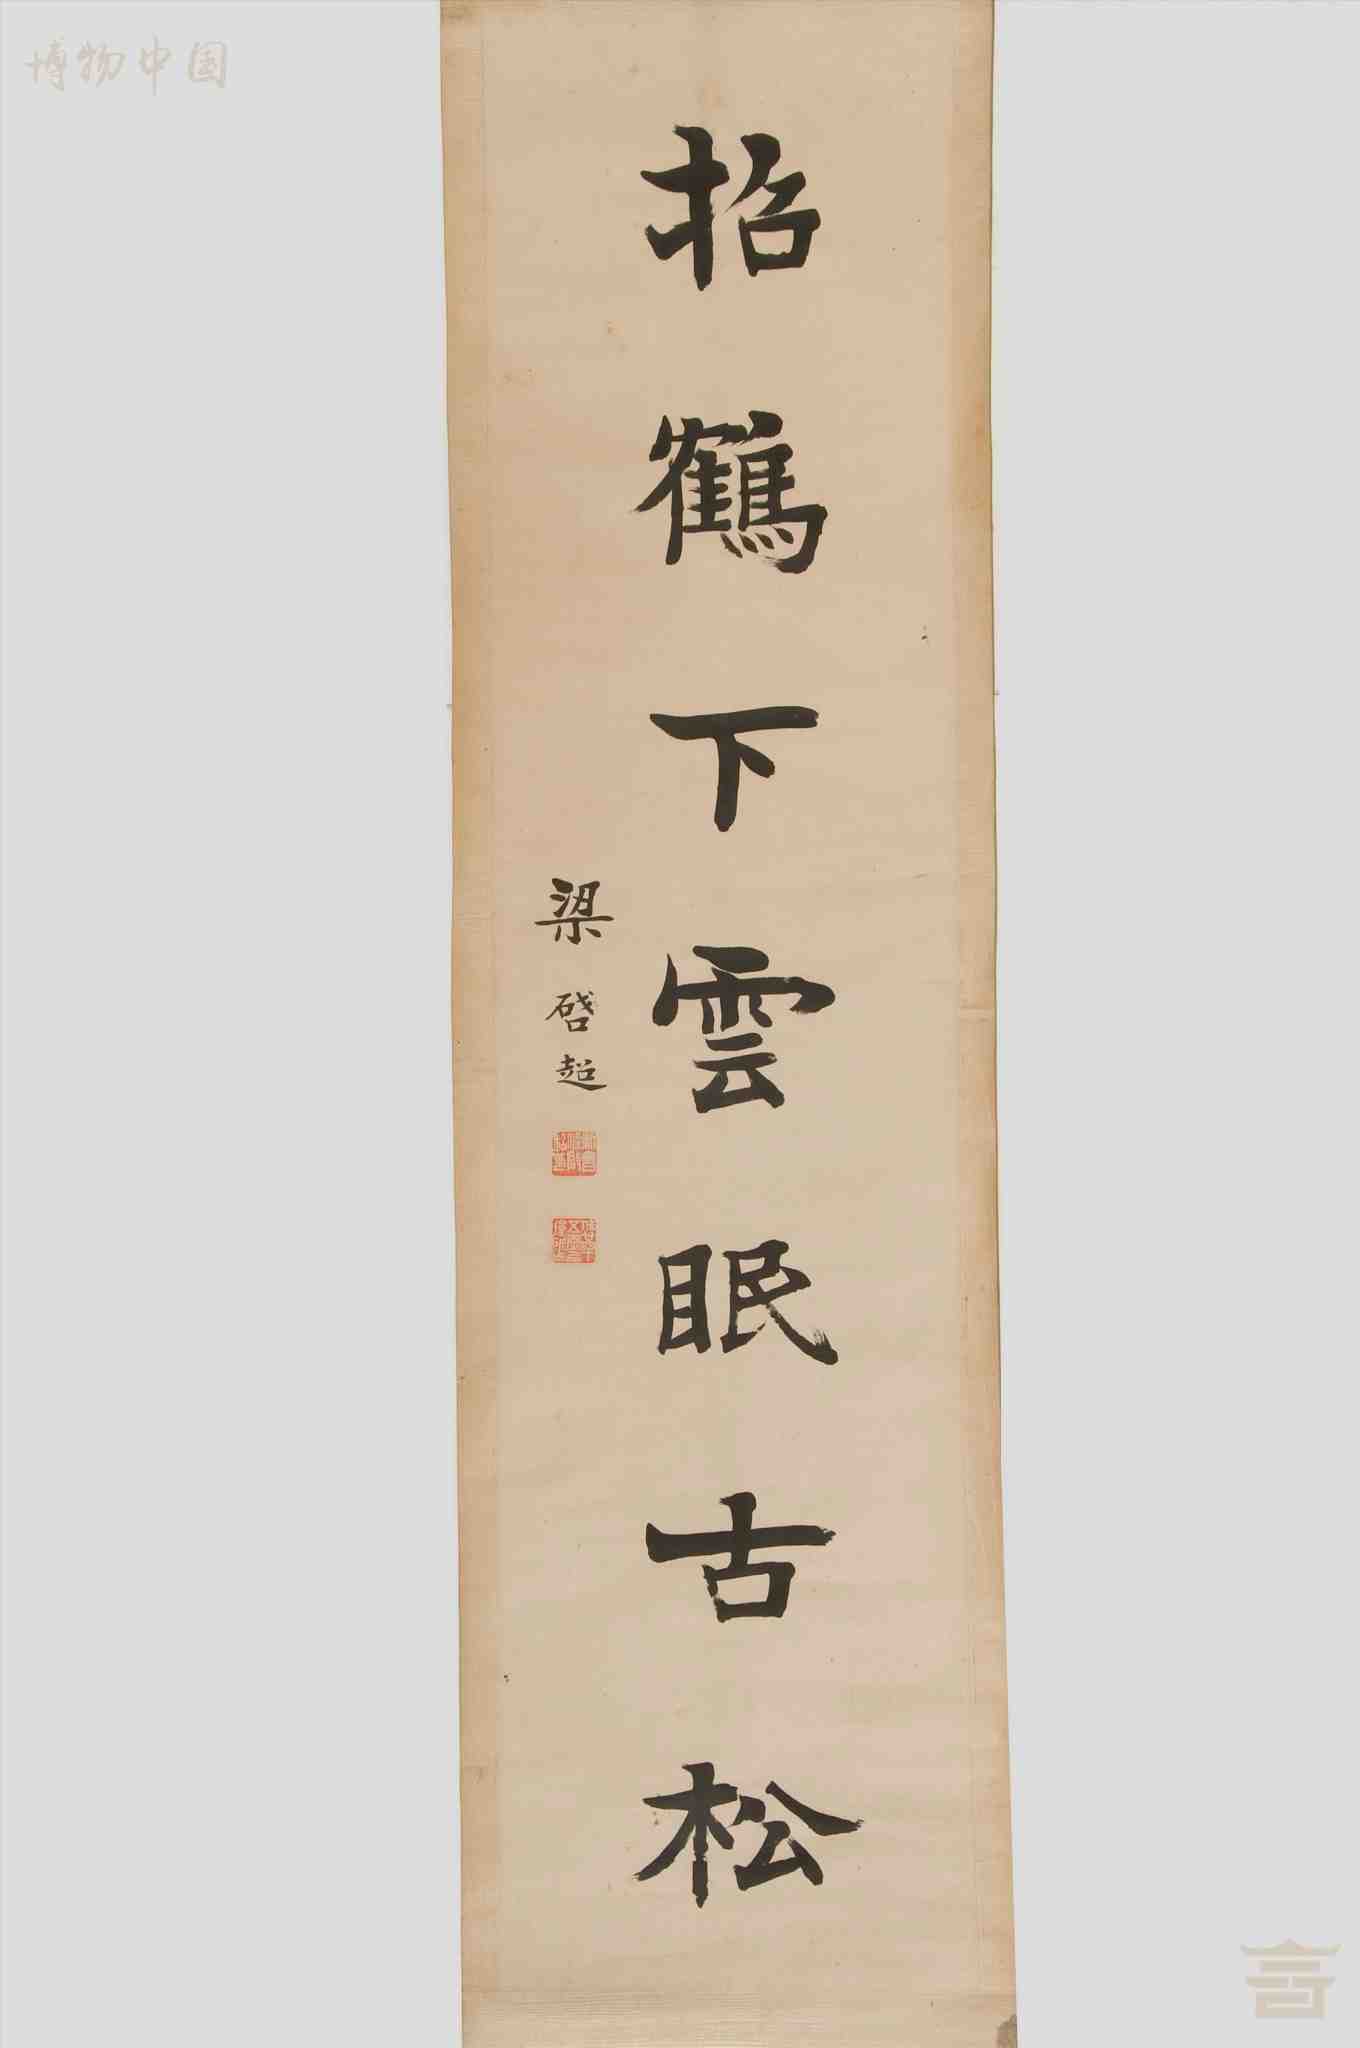 博物中国
招鶴下雲眠古松
梁啓超